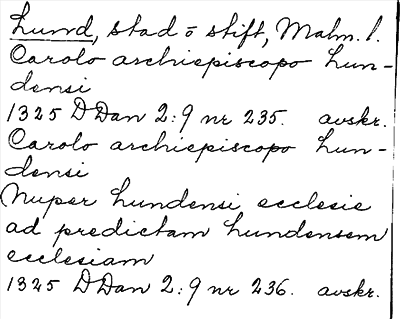 Lund, stad o stift, Malm. l.
Carolo archiepiscopo Lun-
densi
1325 DDan 2:9 nr 235. avskr.
Carolo archiepiscopo Lun-
densi
Nuper Lundensi ecclesie
ad predictam Lundensem
ecclesiam
1325 DDan 2:9 nr 236. avskr.